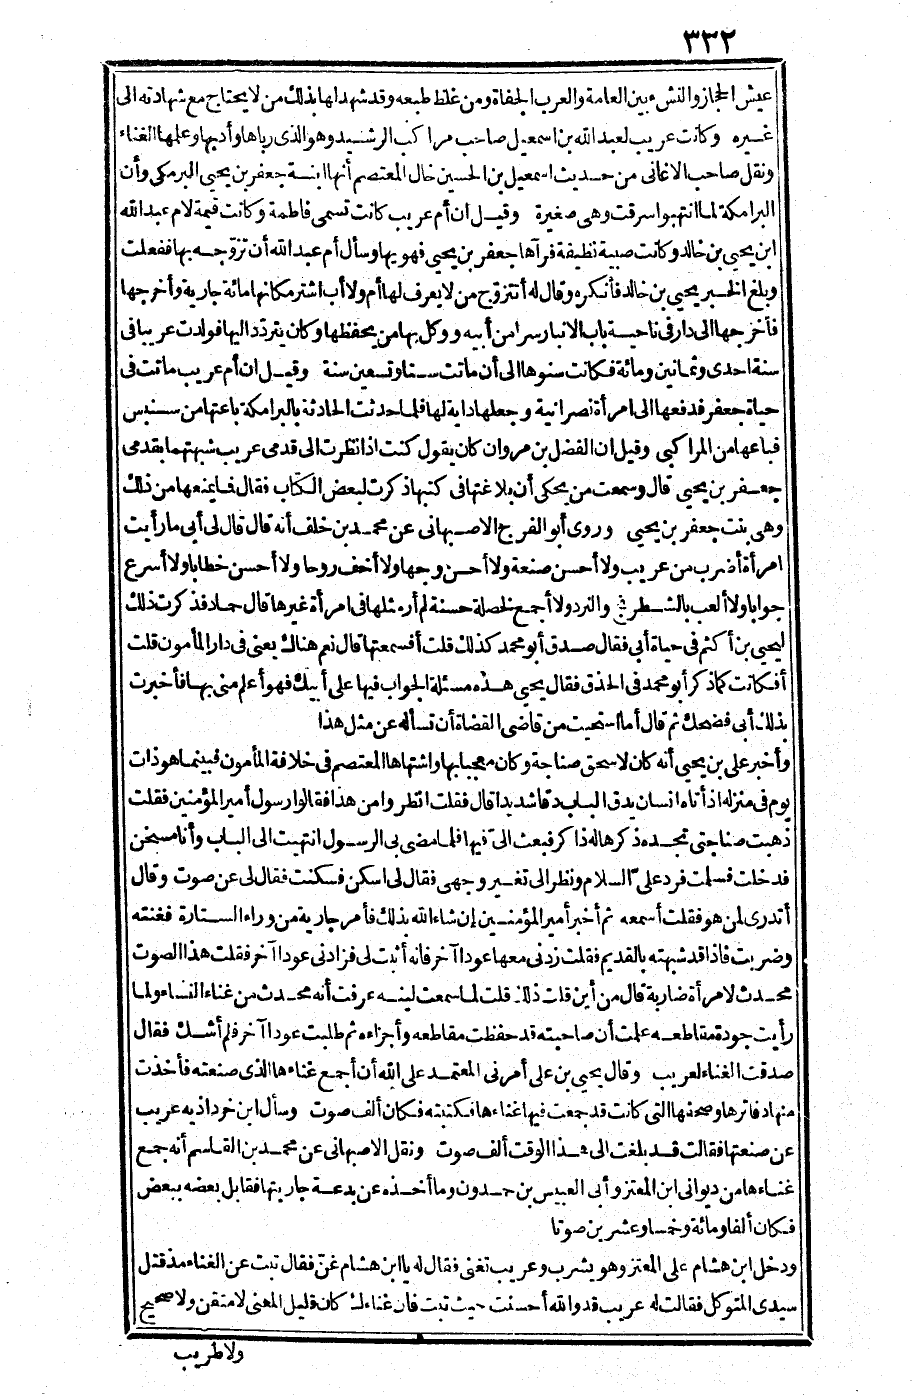 ٣٣٢
عيش الحجاز والنشء بين العامة والعرب الجفاة ومن غلظ طبعه وقد شهد لها بذلك من لا يحتاج مع شهادته الى
غيره وكانت عريب لعبد الله بن اسمعيل صاحب مراكب الرشيد وهو الذى رباها وأدبها وعلمها الغناء
ونقل صاحب الاغانى من حديث اسمعيل بن الحسين خال المعتصم أنها ابنة جعفر بن يحيى البرمكى وأن
البرامكة لما انتهبوا سرقت وهى صغيرة وقيل ان أم عريب كانت تسمى فاطمة وكانت قيمة لام عبد الله
ابن يحيى بن خالد وكانت صبية نظيفة فرآها جعفر بن يحيى فهويها وسأل أم عبد الله أن تزوجه بها ففعلت
وبلغ الخبر يحيى بن خالد فأنكره وقال له أتتزوج من لا يعرف لها أم ولا أب اشتر مكانها مائة جارية وأخرجها
فأخرجها الى دار فى ناحية باب الانبار سرا من أبيه ووكل بها من يحفظها وكان يتردد اليها فولدت عريبا فى
سنة احدى وثمانين ومائة فكانت سنوها الى أن ماتت ستا وتسعين سنة وقيل ان أم عريب ماتت فى
حياة جعفر فدفعها الى امرأة نصرانية وجعلها داية لها فلما حدثت الحادثة بالبرامكة باعتها من سنبس
فباعها من المراكبى وقيل ان الفضل بن مروان كان يقول كنت اذا نظرت الى قدمى عريب شبهتهما بقدمى
جعفر بن يحيى قال وسمعت من يحكى أن بلاغتها فى كتبها ذكرت لبعض الكتاب فقال فما يمنعها من ذلك
وهى بنت جعفر بن يحيى وروى أبو الفرج الاصبهانى عن محمد بن خلف أنه قال قال لى أبى ما رأيت
امرأة أضرب من عريب ولا أحسن صنعة ولا أحسن وجها ولا أخف روحا ولا أحسن خطابا ولا أسرع
جوابا ولا ألعب بالشطرنج والنرد ولا أجمع لخصلة حسنة لم أر مثلها فى امرأة غيرها قال حماد فذكرت ذلك
ليحيى بن أكثم فى حياة أبى فقال صدق أبو محمد كذلك قلت أفسمعتها قال نعم هناك يعنى فى دار المأمون قلت
أفكانت كما ذكر أبو محمد فى الحذق فقال يحيى هذه مسئلة الجواب فيها على أبيك فهو أعلم منى بها فأخبرت
بذلك أبى فضحك ثم قال أما استحيت من قاضى القضاة أن تسأله عن مثل هذا
وأخبر على بن يحيى أنه كان لاسحق صناجة وكان معجبا بها واشتهاها المعتصم فى خلافة المأمون فبينما هو ذات
يوم فى منزله اذ أتاه انسان يدق الباب دقا شديدا قال فقلت انظروا من هذا فقالوا رسول أمير المؤمنين فقلت
ذهبت صناجتى تجده ذكرها له ذاكر فبعث الىّ فيها فلما مضى بى الرسول انتهيت الى الباب وأنا مسخن
فدخلت فسلمت فرد علىّ السلام ونظر الى تغير وجهى فقال لى اسكن فسكنت فقال لى عن صوت وقال
أتدرى لمن هو فقلت أسمعه ثم أخبر أمير المؤمنين إن شاء الله بذلك فأمر جارية من وراء الستارة فغنته
وضربت فاذا قد شبهته بالقديم فقلت زدنى معها عودا آخر فانه أثبت لى فزادنى عودا آخر فقلت هذا الصوت
محدث لامرأة ضاربة قال من أين قلت ذلك قلت لما سمعت لينه عرفت أنه محدث من غناء النساء ولما
رأيت جودة مقاطعه علمت أن صاحبته قد حفظت مقاطعه وأجزاءه ثم طلبت عودا آخر فلم أشك فقال
صدقت الغناء لعريب وقال يحيى بن على أمرنى المعتمد على الله أن أجمع غناءها الذى صنعته فأخذت
منها دفاترها وصحفها التى كانت قد جمعت فيها غناءها فكتبته فكان ألف صوت وسأل ابن خرداذبه عريب
عن صنعتها فقالت قد بلغت الى هذا الوقت ألف صوت ونقل الاصبهانى عن محمد بن القاسم أنه جمع
غناءها من ديوانى ابن المعتز وأبى العبيس بن حمدون وما أخذه عن بدعة جاريتها فقابل بعضه ببعض
فكان ألفا ومائة وخمسا وعشرين صوتا
ودخل ابن هشام على المعتز وهو يشرب وعريب تغنى فقال له يا ابن هشام غنّ فقال تبت عن الغناء مذ قتل
سيدى المتوكل فقالت له عريب قد والله أحسنت حيث تبت فان غناءك كان قليل المعنى لا متقن ولا صحيح
ولا طريب